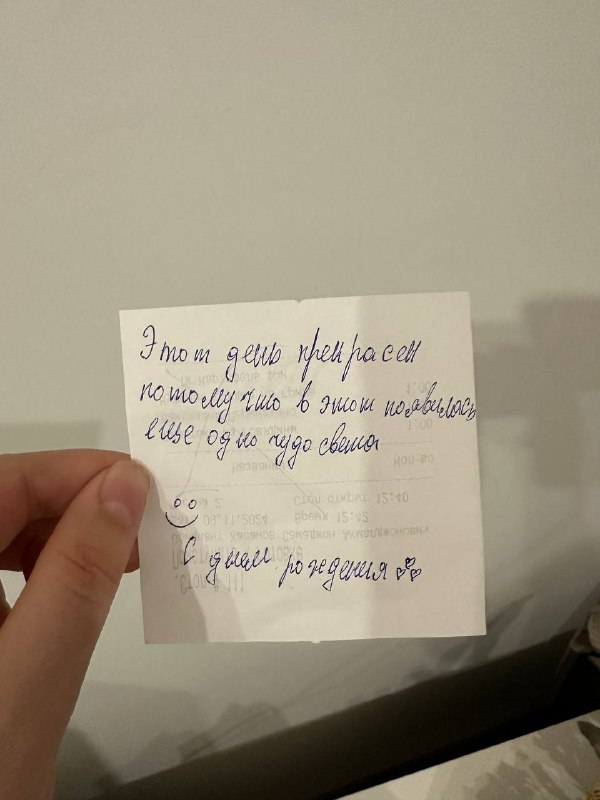 Этот день прекрасен
потому что в этот появилась
еще одно чудо света
С днем рождения